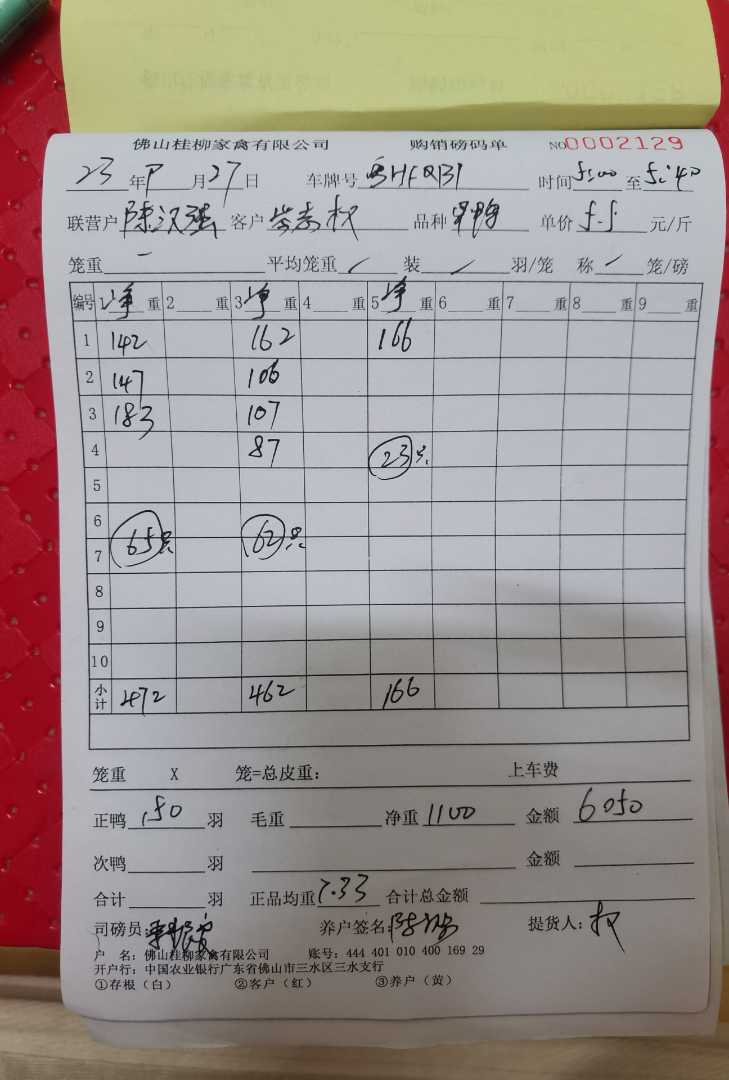 佛山桂柳家禽有限公司 购销磅码单 NO0002129
23 年 月 27 日 车牌号 时间 5:00 至 5:40
联营户 陈汉强 客户 权 品种 鸭 单价 5.5 元/斤
笼重 一 平均笼重 / 装 / 羽/笼 称 / 笼/磅
编号 1 净 重 2 重 3 净 重 4 重 5 净 重 6 重 7 重 8 重 9 重
1 142 162 166
2 147 106
3 183 107
4 87 23只
5
6
7 65只 62只
8
9
10
小计 472 462 166
笼重 X 笼=总皮重: 上车费
正鸭 150 羽 毛重 净重 1100 金额 6050
次鸭 羽 金额
合计 羽 正品均重 7.33 合计总金额
司磅员: 养户签名: 提货人: 权
户 名: 佛山桂柳家禽有限公司 账号: 444 401 010 400 169 29
开户行: 中国农业银行广东省佛山市三水区三水支行
①存根（白） ②客户（红） ③养户（黄）